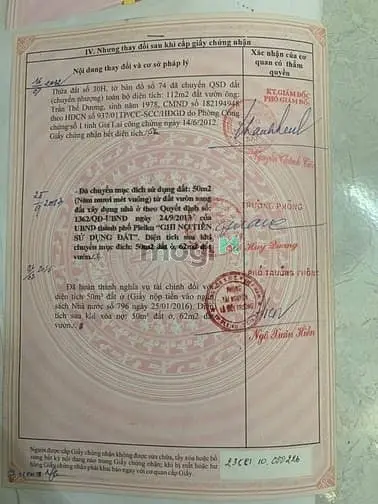 IV. Những thay đổi sau khi cấp giấy chứng nhận
Nội dung thay đổi và cơ sở pháp lý
Xác nhận của cơ quan có thẩm quyền
Thửa đất số 30H, tờ bản đồ số 74 đã chuyển QSD đất
(chuyển nhượng) toàn bộ diện tích: 112m2 đất vườn ông:
Trần Thế Dương, sinh năm 1978, CMND số 182194948
theo HDCN số 937/01TP/CC-SCC/HĐGD do Phòng Công
chứng số 1 tỉnh Gia Lai công chứng ngày 14/6/2012.
Giấy chứng nhận hết diện tích
KT.GIÁM ĐỐC
PHÓ GIÁM ĐỐC
- Đã chuyển mục đích sử dụng đất: 50m2
(Năm mươi mét vuông) từ đất vườn sang
đất xây dựng nhà ở theo Quyết định số:
1362/QĐ-UBND ngày 24/9/2013 của
UBND thành phố Pleiku "GHI NỢ TIỀN
SỬ DỤNG ĐẤT". Diện tích sau khi
chuyển mục đích: 50m2 đất ở, 62m2 đất
vườn.
TRƯỞNG PHÒNG
Huy Dương
mogi
Đã hoàn thành nghĩa vụ tài chính đối với
diện tích 50m2 đất ở (Giấy nộp tiền vào ngân
sách Nhà nước số 796 ngày 25/01/2016). Diện
tích sau khi xóa nợ: 50m2 đất ở, 62m2 đất
vườn.
PHÒNG
TÀI NGUYÊN
VÀ MÔI TRƯỜNG
PHÓ TRƯỞNG PHÒNG
Ngô Xuân Hiền
Người được cấp Giấy chứng nhận không được sửa chữa, tẩy xóa hoặc bổ
sung bất kỳ nội dung nào trong Giấy chứng nhận; khi bị mất hoặc hư
hỏng Giấy chứng nhận phải khai báo ngay với cơ quan cấp giấy.